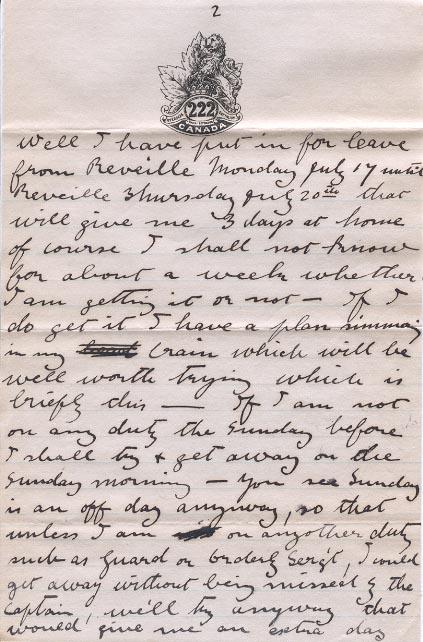 2
222
CANADA
Well I have put in for leave
from Reveille Monday July 17 until
Reveille Thursday July 20th that
will give me 3 days at home
of course I shall not know
for about a week whether
I am getting it or not — If I
do get it I have a plan simmering
in my brain which will be
well worth trying which is
briefly this — If I am not
on any duty the Sunday before
I shall try & get away on the
Sunday morning — You see Sunday
is an off day anyway, so that
unless I am on any other duty
such as guard or orderly Serg't, I could
get away without being missed by the
Captain, we'll try anyway that
would give me an extra day